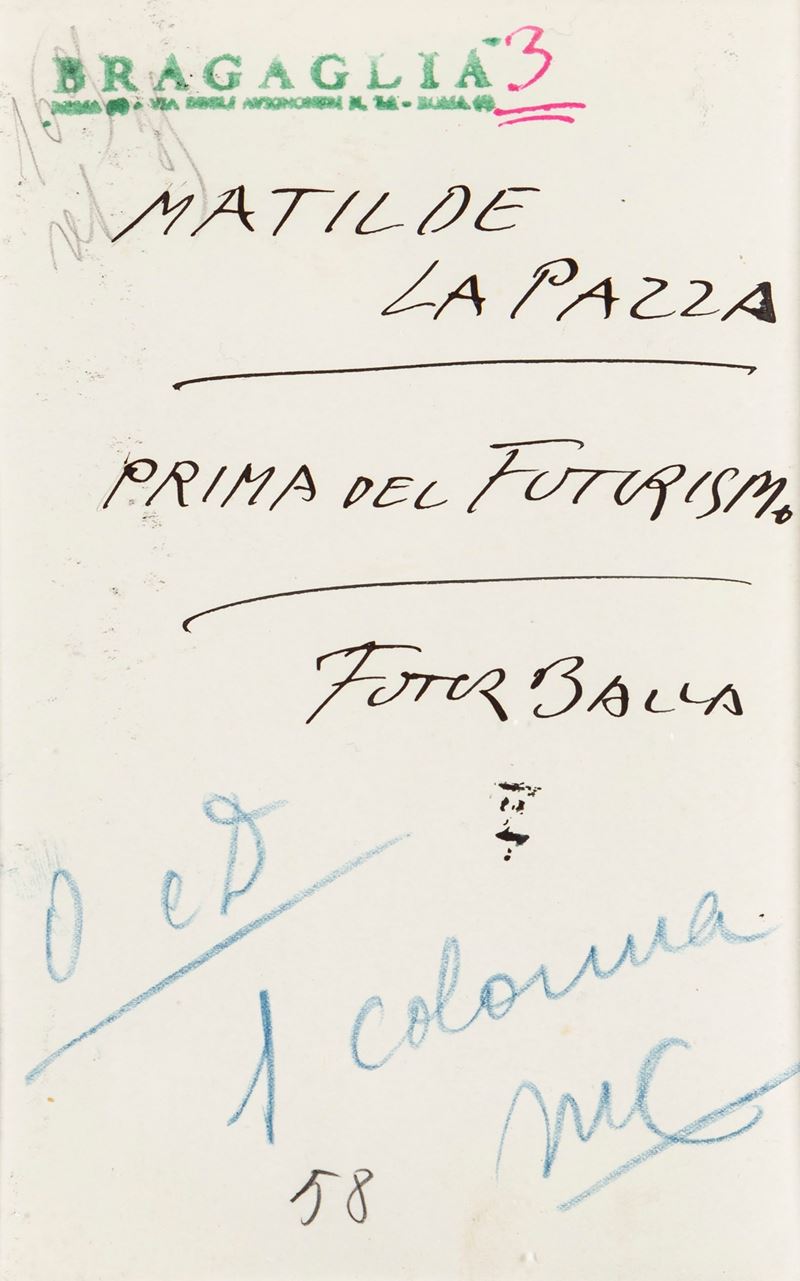 BRAGAGLIA 3
ROMA VIA DEGLI AVIGNONESI N. ROMA
MATILDE
LA PAZZA
PRIMA DEL FUTURISMo
FUTUR BALLA
1 colonna
58